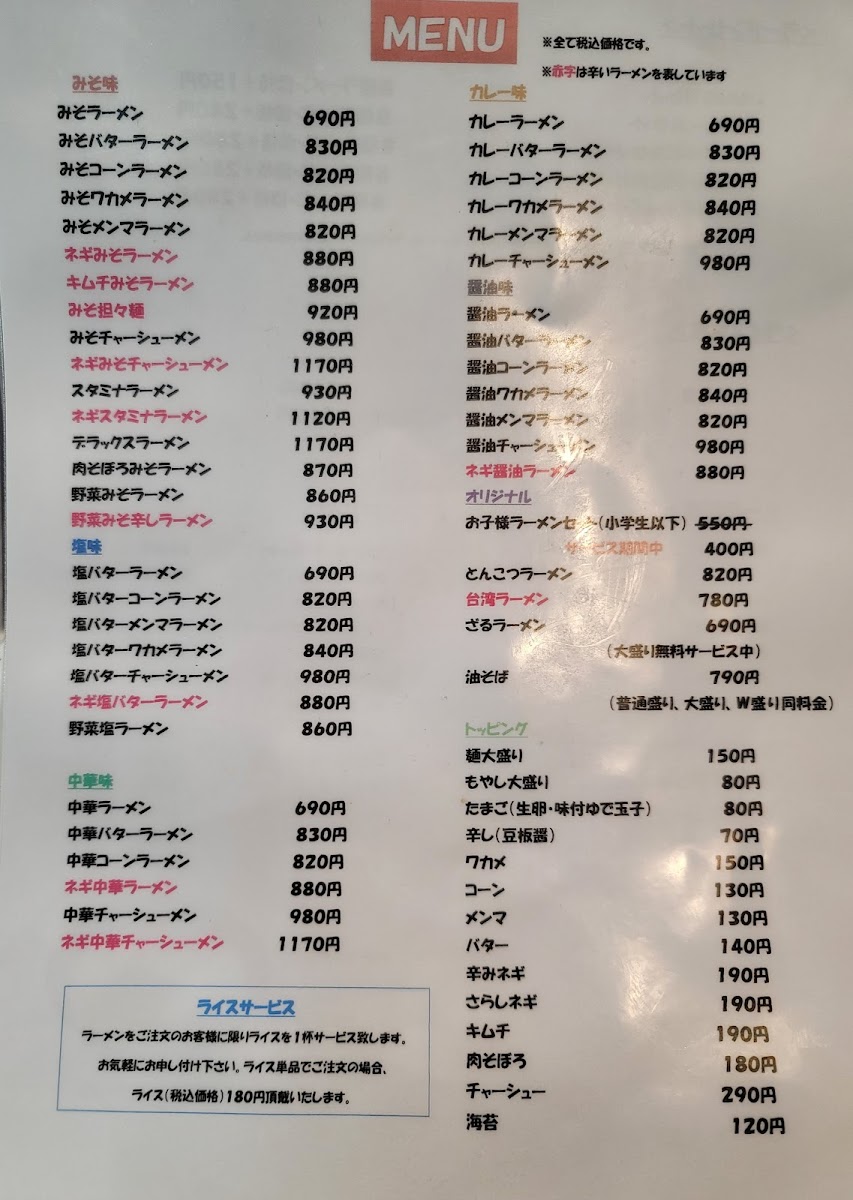 MENU
※全て税込価格です。
※赤字は辛いラーメンを表しています
みそ味
みそラーメン 690円
みそバターラーメン 830円
みそコーンラーメン 820円
みそワカメラーメン 840円
みそメンマラーメン 820円
ネギみそラーメン 880円
キムチみそラーメン 880円
みそ担々麺 920円
みそチャーシューメン 980円
ネギみそチャーシューメン 1170円
スタミナラーメン 930円
ネギスタミナラーメン 1120円
デラックスラーメン 1170円
肉そぼろみそラーメン 870円
野菜みそラーメン 860円
野菜みそ辛しラーメン 930円
塩味
塩バターラーメン 690円
塩バターコーンラーメン 820円
塩バターメンマラーメン 820円
塩バターワカメラーメン 840円
塩バターチャーシューメン 980円
ネギ塩バターラーメン 880円
野菜塩ラーメン 860円
中華味
中華ラーメン 690円
中華バターラーメン 830円
中華コーンラーメン 820円
ネギ中華ラーメン 880円
中華チャーシューメン 980円
ネギ中華チャーシューメン 1170円
ライスサービス
ラーメンをご注文のお客様に限りライスを1杯サービス致します。
お気軽にお申し付け下さい。ライス単品でご注文の場合、
ライス(税込価格)180円頂戴いたします。
カレー味
カレーラーメン 690円
カレーバターラーメン 830円
カレーコーンラーメン 820円
カレーワカメラーメン 840円
カレーメンマラーメン 820円
カレーチャーシューメン 980円
醤油味
醤油ラーメン 690円
醤油バターラーメン 830円
醤油コーンラーメン 820円
醤油ワカメラーメン 840円
醤油メンマラーメン 820円
醤油チャーシューメン 980円
ネギ醤油ラーメン 880円
オリジナル
お子様ラーメンセット(小学生以下) 550円
サービス期間中 400円
とんこつラーメン 820円
台湾ラーメン 780円
ざるラーメン 690円
(大盛り無料サービス中)
油そば 790円
(普通盛り、大盛り、W盛り同料金)
トッピング
麺大盛り 150円
もやし大盛り 80円
たまご(生卵・味付ゆで玉子) 80円
辛し(豆板醤) 70円
ワカメ 150円
コーン 130円
メンマ 130円
バター 140円
辛みネギ 190円
さらしネギ 190円
キムチ 190円
肉そぼろ 180円
チャーシュー 290円
海苔 120円